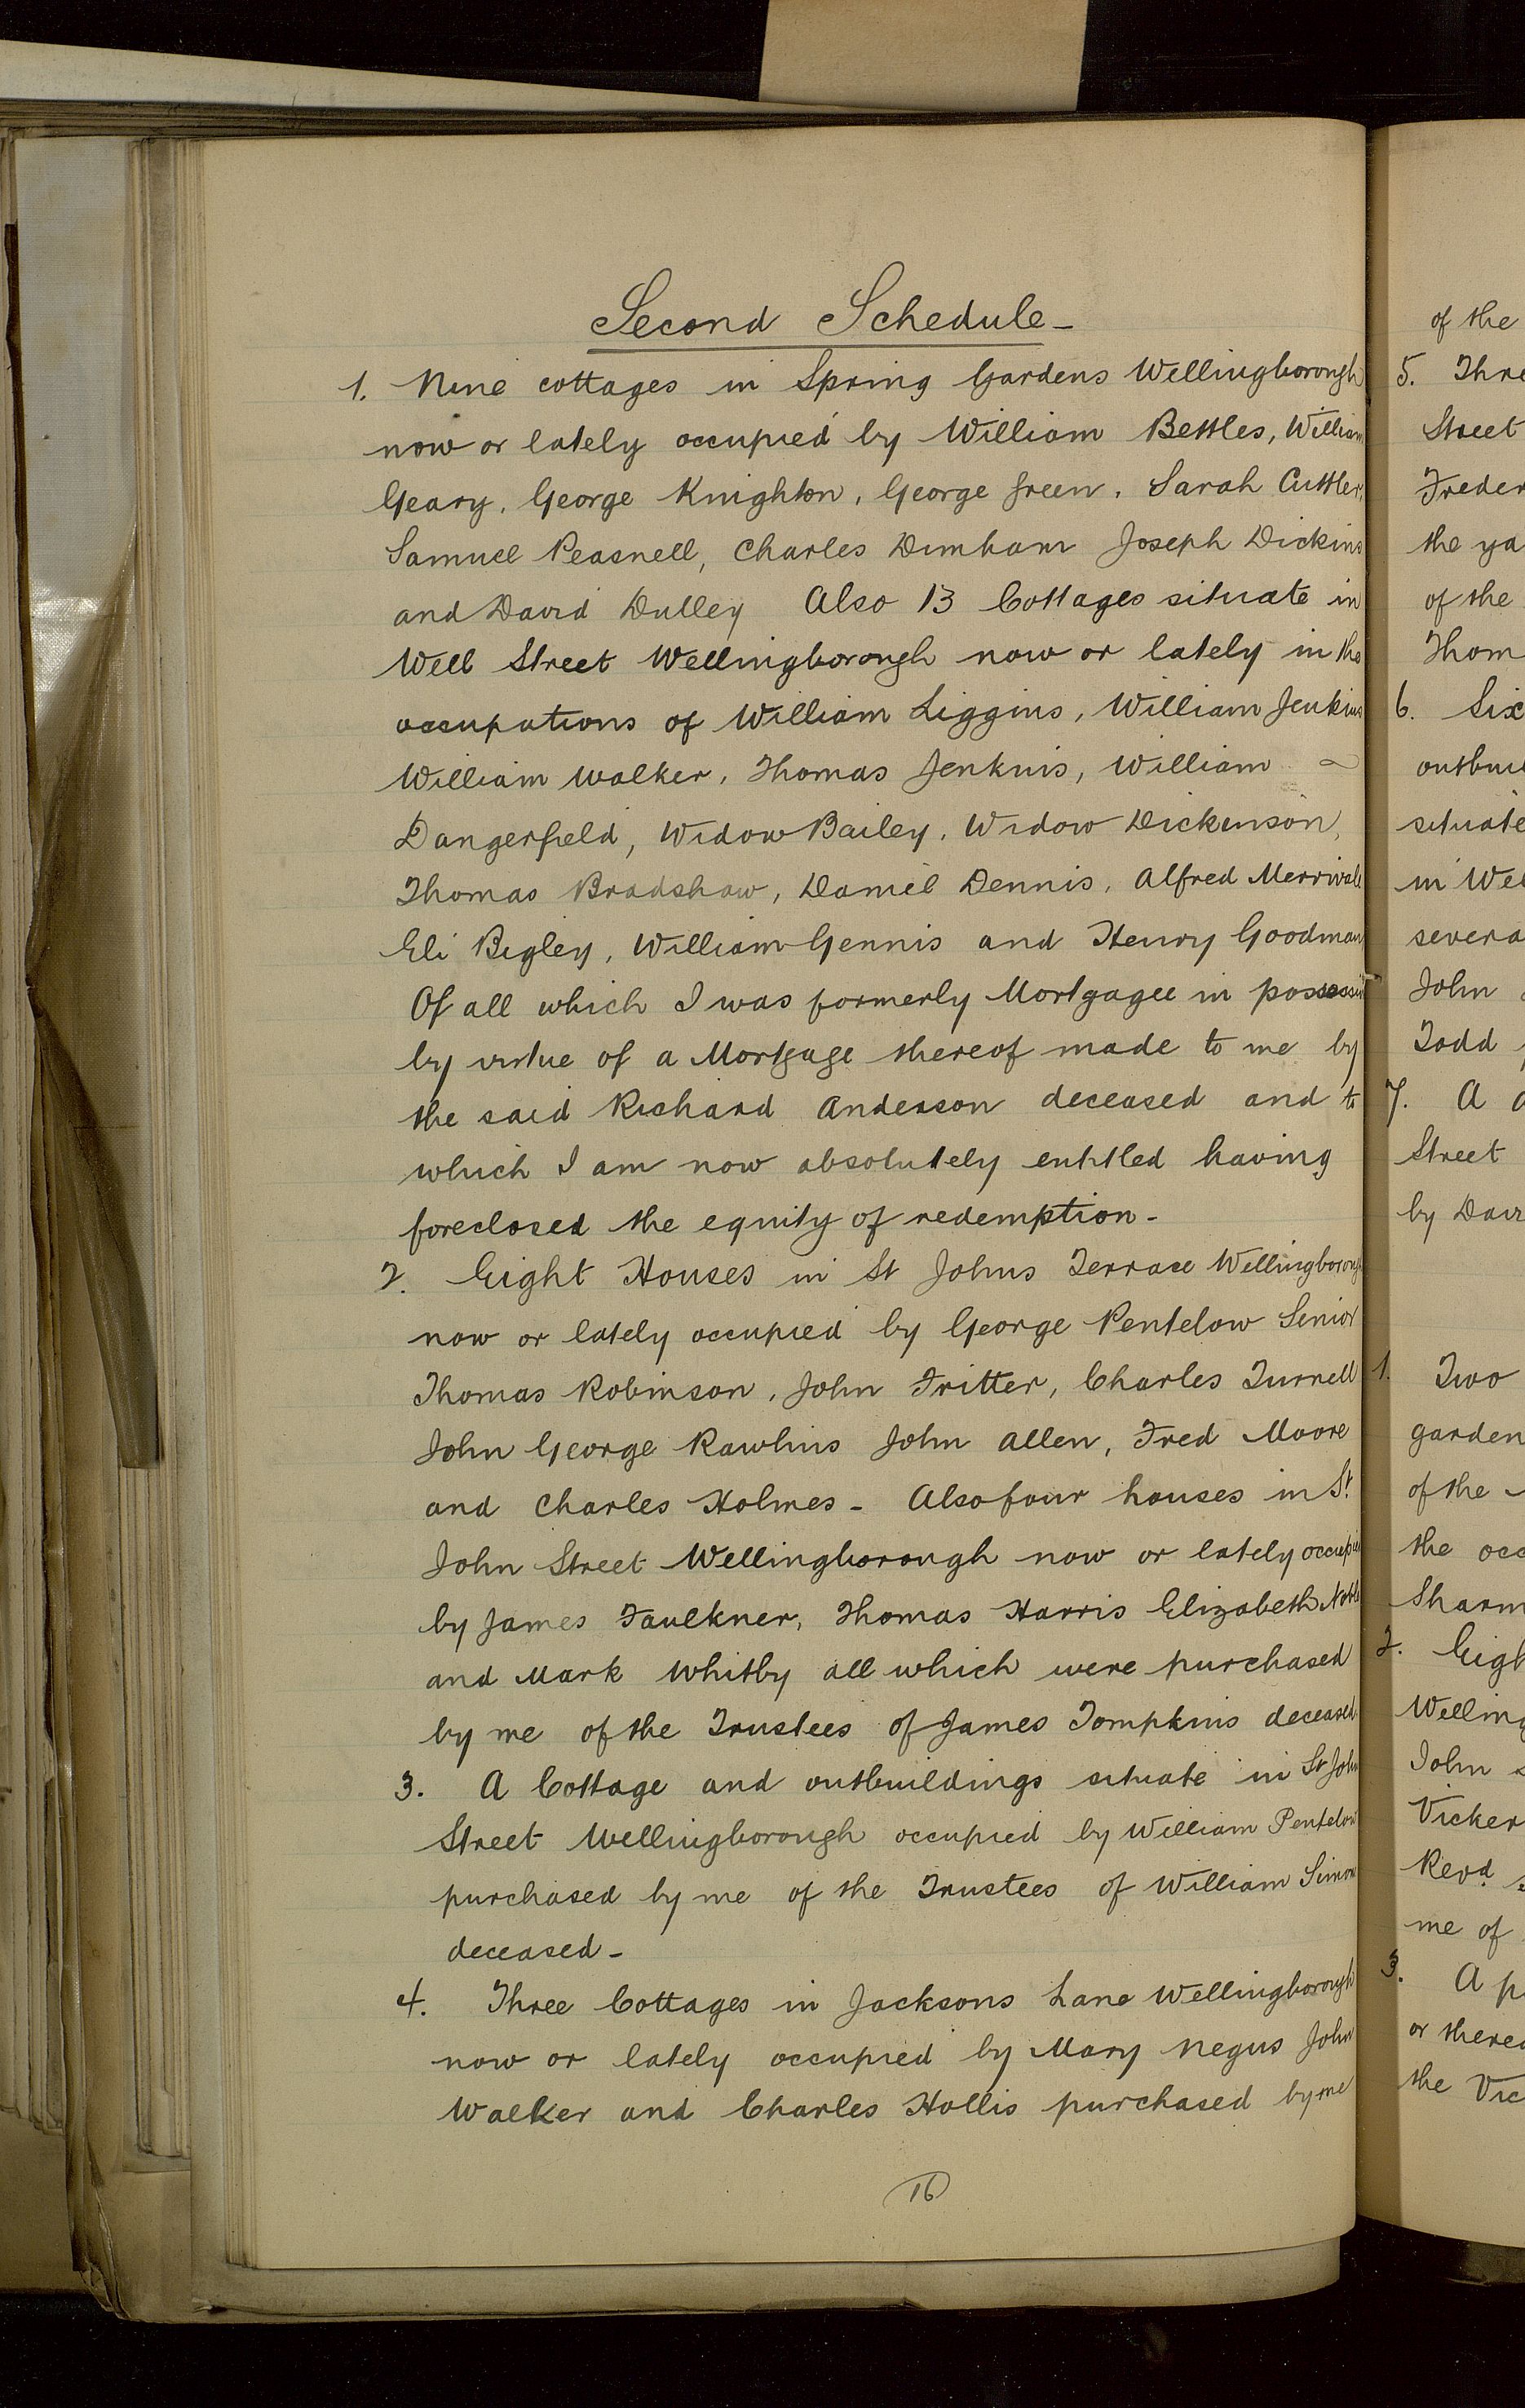 Second Schedule -
1. Nine cottages in Spring Gardens Wellingborough
now or lately occupied by William Bettles, William
Geary, George Knighton, George Green, Sarah Cuttler,
Samuel Peasnell, Charles Dunham Joseph Dickins
and David Dulley Also 13 Cottages situate in
Well Street Wellingborough now or lately in the
occupations of William Liggins, William Jenkins
William Walker, Thomas Jenkins, William
Dangerfield, Widow Bailey, Widow Dickinson,
Thomas Bradshaw, Daniel Dennis, Alfred Merrivale
Eli Bigley, William Gennis and Henry Goodman
Of all which I was formerly Mortgagee in possession
by virtue of a Mortgage thereof made to me by
the said Richard Anderson deceased and to
which I am now absolutely entitled having
foreclosed the equity of redemption -
2. Eight Houses in St Johns Terrace Wellingborough
now or lately occupied by George Pentelow Senior
Thomas Robinson, John Tritter, Charles Turnell
John George Rawlins John Allen, Fred Moore
and Charles Holmes - Also four houses in St.
John Street Wellingborough now or lately occupied
by James Faulkner, Thomas Harris Elizabeth
and Mark Whitby all which were purchased
by me of the Trustees of James Tompkins deceased
3. A Cottage and outbuildings situate in St John
Street Wellingborough occupied by William Pentelow
purchased by me of the Trustees of William
deceased -
4. Three Cottages in Jacksons Lane Wellingborough
now or lately occupied by Mary Negus John
Walker and Charles Hollis purchased by me
16
of the
5. Thre
Street
Freder
the ya
of the
Thom
6. Six
outbui
situate
in Wel
severa
John
Todd
7. A
Street
by Davi
1. Two
garden
of the
the occ
Sharm
2. Eigh
Welling
John
Vicker
Revd.
me of
3. A p
or there
the Vic